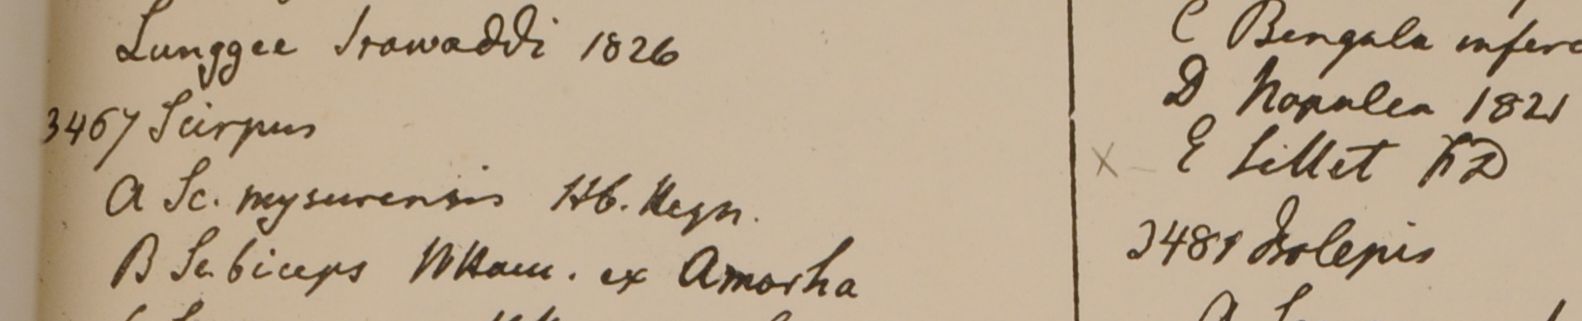 Lunggee Irawaddi 1826
3467 Scirpus
A Sc. mysurensis Hb. Heyn.
B Sc. biceps Ham. ex Amorha
C Bengala infer
D Napalea 1821
E Sillet FD
3481 Isolepis